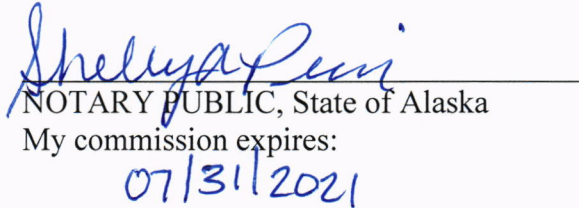 NOTARY PUBLIC, State of Alaska
My commission expires:
07/31/2021